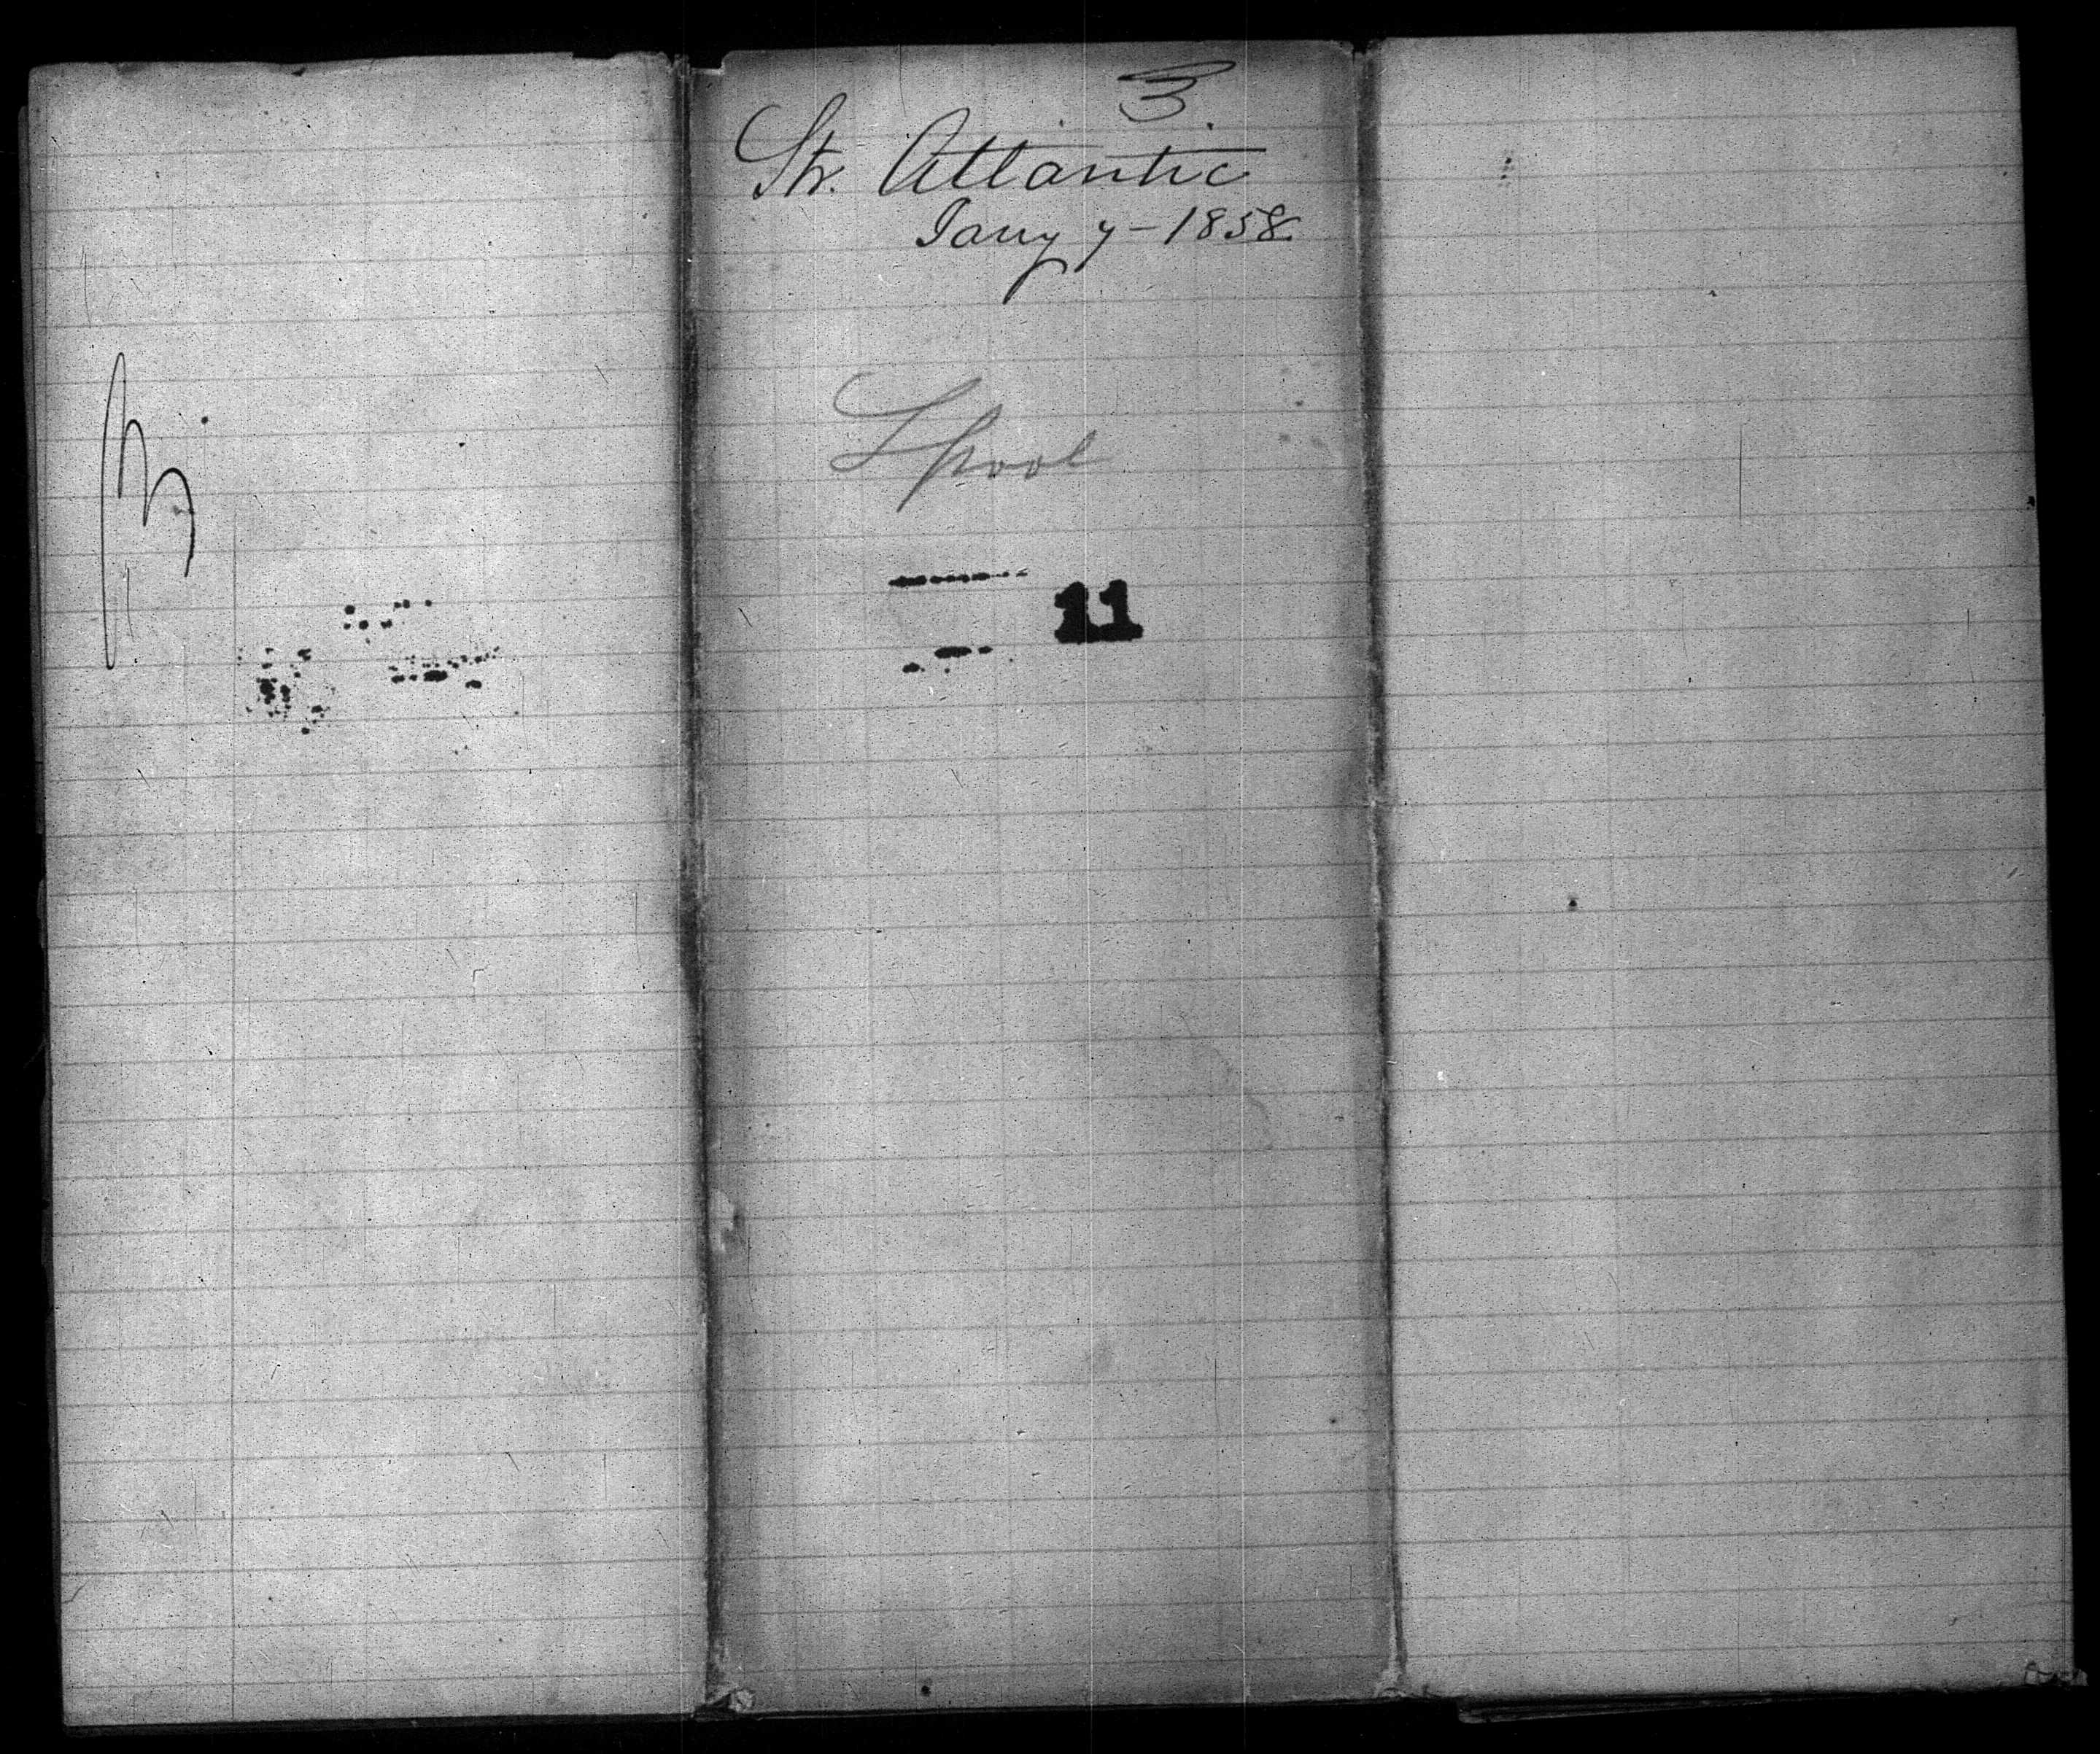 3
Str. Atlantic
Jany 7-1858.
Lpool
11